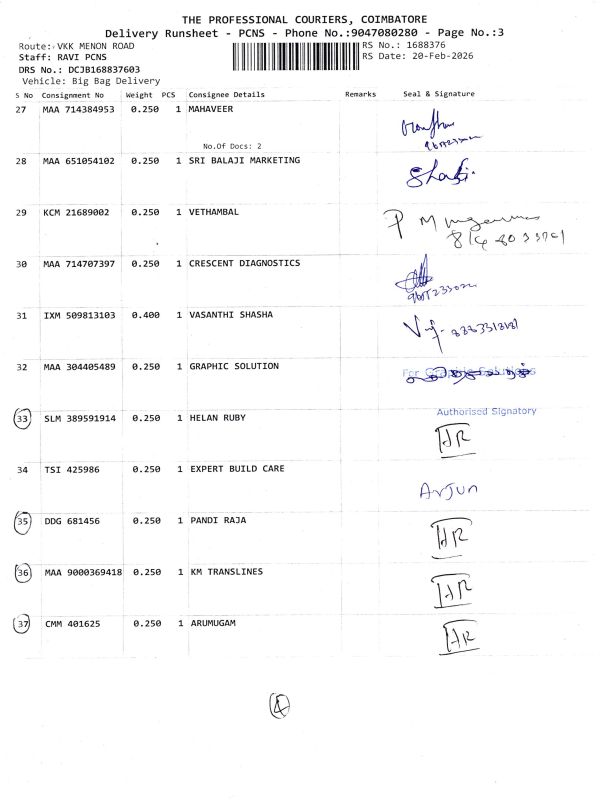 THE PROFESSIONAL COURIERS, COIMBATORE
Delivery Runsheet - PCNS - Phone No.:9047080280 - Page No.:3
Route: VKK MENON ROAD
RS No.: 1688376
Staff: RAVI PCNS
RS Date: 20-Feb-2026
DRS No.: DCJB168837603
Vehicle: Big Bag Delivery
S No Consignment No Weight PCS Consignee Details Remarks Seal & Signature
27 MAA 714384953 0.250 1 MAHAVEER
No.Of Docs: 2
28 MAA 651054102 0.250 1 SRI BALAJI MARKETING
29 KCM 21689002 0.250 1 VETHAMBAL
30 MAA 714707397 0.250 1 CRESCENT DIAGNOSTICS
31 IXM 509813103 0.400 1 VASANTHI SHASHA
32 MAA 304405489 0.250 1 GRAPHIC SOLUTION
For Graphic Solutions
Authorised Signatory
33 SLM 389591914 0.250 1 HELAN RUBY HR
34 TSI 425986 0.250 1 EXPERT BUILD CARE Arjun
35 DDG 681456 0.250 1 PANDI RAJA HR
36 MAA 9000369418 0.250 1 KM TRANSLINES HR
37 CMM 401625 0.250 1 ARUMUGAM HR